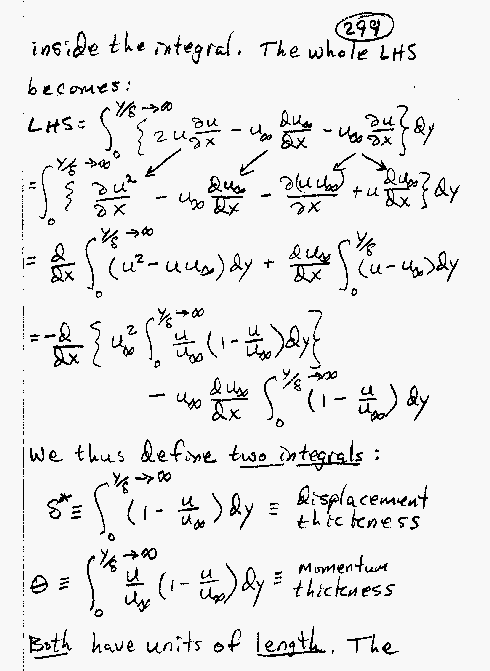 299
inside the integral. The whole LHS
becomes:
LHS = ∫₀^{y/δ→∞} { 2u ∂u/∂x − u∞ du∞/dx − u∞ ∂u/∂x } dy
= ∫₀^{y/δ→∞} { ∂u²/∂x − u∞ du∞/dx − ∂(u u∞)/∂x + u du∞/dx } dy
= d/dx ∫₀^{y/δ→∞} (u² − u u∞) dy + du∞/dx ∫₀^{y/δ} (u − u∞) dy
= −d/dx { u∞² ∫₀^{y/δ→∞} u/u∞ (1 − u/u∞) dy }
− u∞ du∞/dx ∫₀^{y/δ→∞} (1 − u/u∞) dy
We thus define two integrals :
δ* ≡ ∫₀^{y/δ→∞} (1 − u/u∞) dy ≡ Displacement thickness
θ ≡ ∫₀^{y/δ→∞} u/u∞ (1 − u/u∞) dy ≡ Momentum thickness
Both have units of length. The